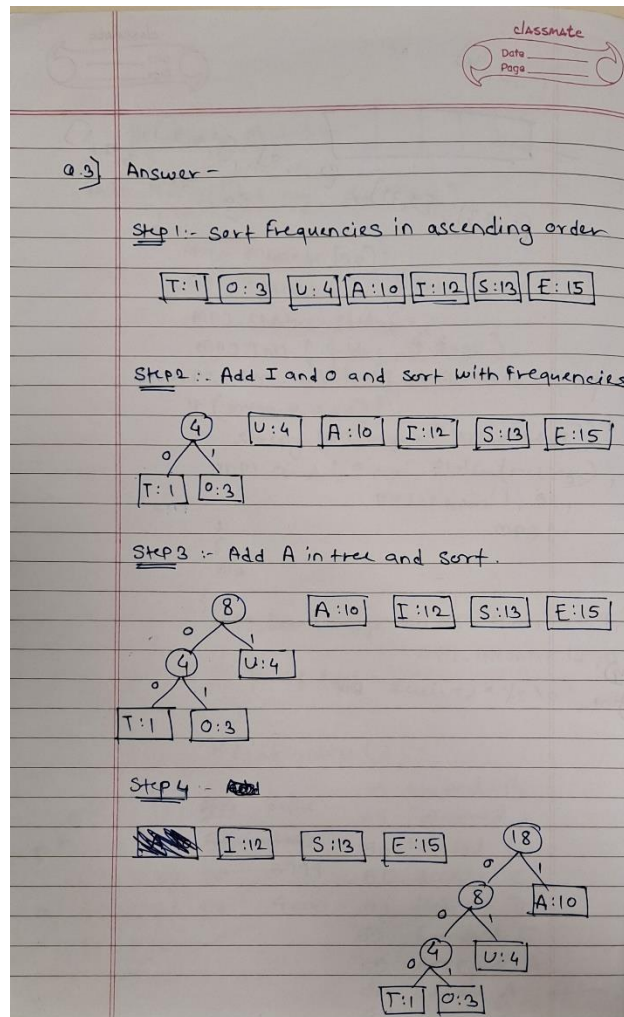 classmate
Date
Page
Q.3] Answer -
Step 1:- Sort frequencies in ascending order
T:1 O:3 U:4 A:10 I:12 S:13 E:15
Step 2:- Add I and O and sort with frequencies
4 U:4 A:10 I:12 S:13 E:15
0 1
T:1 O:3
Step 3:- Add A in tree and sort.
8 A:10 I:12 S:13 E:15
0 1
4 U:4
0 1
T:1 O:3
Step 4:-
I:12 S:13 E:15 18
0 1
8 A:10
0 1
4 U:4
0 1
T:1 O:3